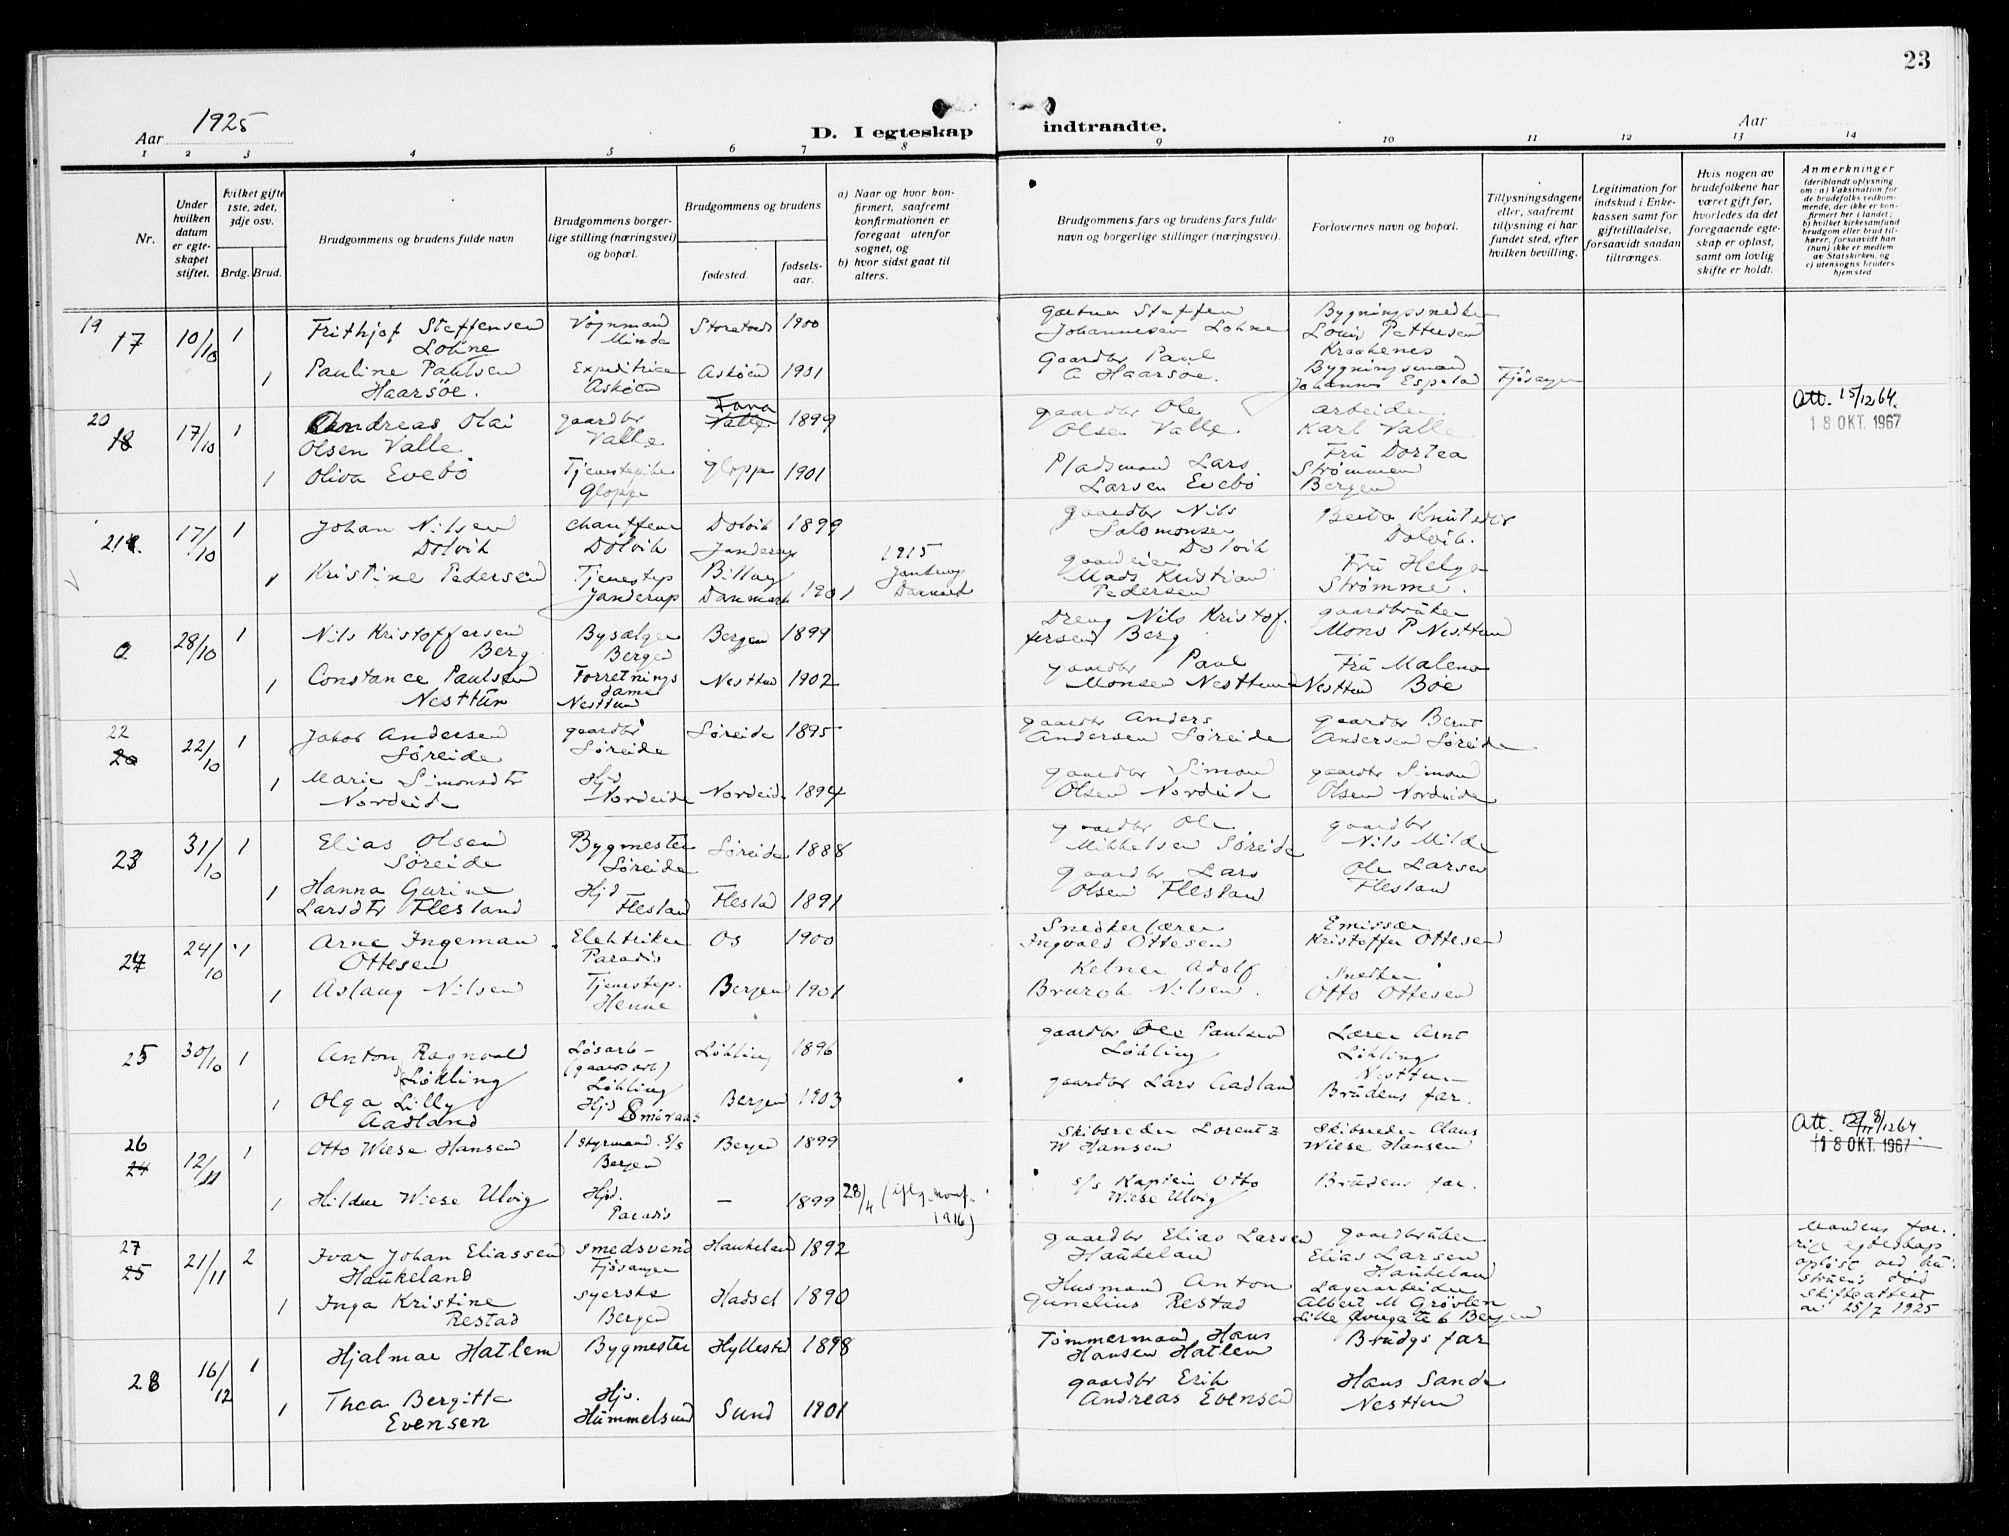 23
Aar 1925
D. I egteskap
indtraadte.
Aar
1 2 3 4 5 6 7 8 9 10 11 12 13 14
Nr.
Under hvilken datum er egteskapet stiftet.
Hvilket gifte 1ste, 2det, 3dje osv.
Brdg. Brud.
Brudgommens og brudens fulde navn
Brudgommens borgerlige stilling (næringsvei) og bopæl.
Brudgommens og brudens
fødested.
fødselsaar.
a) Naar og hvor konfirmert, saafremt konfirmationen er foregaat utenfor sognet, og
b) hvor sidst gaat til alters.
Brudgommens fars og brudens fars fulde navn og borgerlige stillinger (næringsvei).
Forlovernes navn og bopæl.
Tillysningsdagene eller, saafremt tillysning ei har fundet sted, efter hvilken bevilling.
Legitimation for indskud i Enkekassen samt for giftetilladelse, forsaavidt saadan tiltrænges.
Hvis nogen av brudefolkene har været gift før, hvorledes da det foregaaende egteskap er opløst, samt om lovlig skifte er holdt.
Anmerkninger
(deriblandt oplysning om: a) Vaksination for de brudefolks vedkommende, der ikke er konfirmert her i landet; b) hvilket kirkesamfund brudgom eller brud tilhører, forsaavidt han (hun) ikke er medlem av Statskirken, og c) utensogns bruders hjemsted
19 17 10/10 1 Frithjof Steffensen Lohne Vognmand Minde 1900
Gartner Steffen Johannesen Lohne Bygningssnedker Pettersen Kraakenes
1 Pauline Paulsen Haarsøe. Expeditrice Askøen Askøen 1901
Gaardbr Paul A Haarsøe. Bygningsmand Johannes Espeland Fjøsanger
20 18 17/10 1 Andreas Olai Olsen Valle gaardbr Valle Fana Valle 1899
gaardbr Ole Olsen Valle arbeider Karl Valle
Att. 15/12 64.
18 OKT. 1967
1 Oliva Evebø Tjenestepike Gloppe Gloppe 1901
Pladsmand Lars Larsen Evebø Frü Dortea Strømmen Bergen
21 17/10 1 Johan Nilsen Dolvik chauffeur Dolvik Dolvik 1899
gaardbr Nils Salomonsen Dolvik Knutsdtr Dolvik.
1 Kristine Pedersen Tjenestep Janderup Janderup Billum Danmark 1901
1915 Janderup Danmark
gaardeier Mads Kristian Pedersen Frü Helga Strømme.
0 28/10 1 Nils Kristoffersen Berg Bysælger Bergen Bergen 1899
Dreng Nils Kristoffersen Berg gaardbrüker Mons P Nesttun
1 Constance Paulsen Nesttün Forretningsdame Nesttun Nesttun 1902
gaardbr Paul Monsen Nesttun Frü Malena Bøe Nesttun
22 20 22/10 1 Jakob Andersen Søreide gaardbr Søreide Søreide 1895
gaardbr Anders Andersen Søreide gaardbr Bernt Andersen Søreide
1 Marie Simonsdtr Nordeide Hjd Nordeide Nordeide 1894
gaardbr Simon Olsen Nordeide gaardbr Simon Olsen Nordeide
23 31/10 1 Elias Olsen Søreide Bygmester Søreide Søreide 1888
gaardbr Ole Mikkelsen Søreide gaardbr Nils Milde
1 Hanna Gurine Larsdtr Flesland Hjd Flesland Flesland 1891
gaardbr Lars Olsen Flesland Ole Larsen Flesland
24 24/10 1 Arne Ingeman Ottesen Elektriker Paradis Os 1900
Snedkerlærer Ingvald Ottesen Emissær Kristoffer Ottesen
1 Aslaug Nilsen Tjenestep. Bergen 1901
Kelner Adolf Nilsen. Snedker Otto Ottesen
25 30/10 1 Anton Ragnvald Løkling Løsarb- (gaardsarb) Løkling Løkling 1896
gaardbr Ole Paulsen Løkling Lærer Arnt Løkling Nesttun
1 Olga Lilly Aadland Hjd Smøraas Bergen 1903
gaardbr Lars Aadland Brüdens far.
26 24 12/11 1 Otto Wiese Hansen 1 styrmand s/s Bergen Bergen 1899
Skibsreder Lorentz W Hansen Skibsreder Claus Wiese Hansen
Att. 64
18 OKT. 1967
1 Hildur Wiese Ulvig Hjd. Paradis — 1899
28/4 (iflg. konf. 1916)
s/s Kaptein Otto Wiese Ulvig Brüdens far.
27 25 21/11 2 Ivar Johan Eliassen Haükeland smedsvend Fjøsanger Haukeland 1892
gaardbr Elias Larsen Haükeland gaardbrüker Elias Larsen Haükeland
Mandens forrige egteskap opløst ved hüstruens død Skifteattest av 25/7 1925
1 Inga Kristine Restad syerske Bergen Hadsel 1890
Husmand Anton Gunelius Restad Lagerarbeider Albert M Grøvlen Lille 6 Bergen
28 16/12 1 Hjalmar Hatlem Bygmester Hyllestad 1898
Tømmermand Hans Hansen Hatlem Brüdgs far
1 Thea Bergitte Evensen Hjs. Hümmelsund Sund 1901
gaardbr Erik Andreas Evensen Hans Sande Nesttun